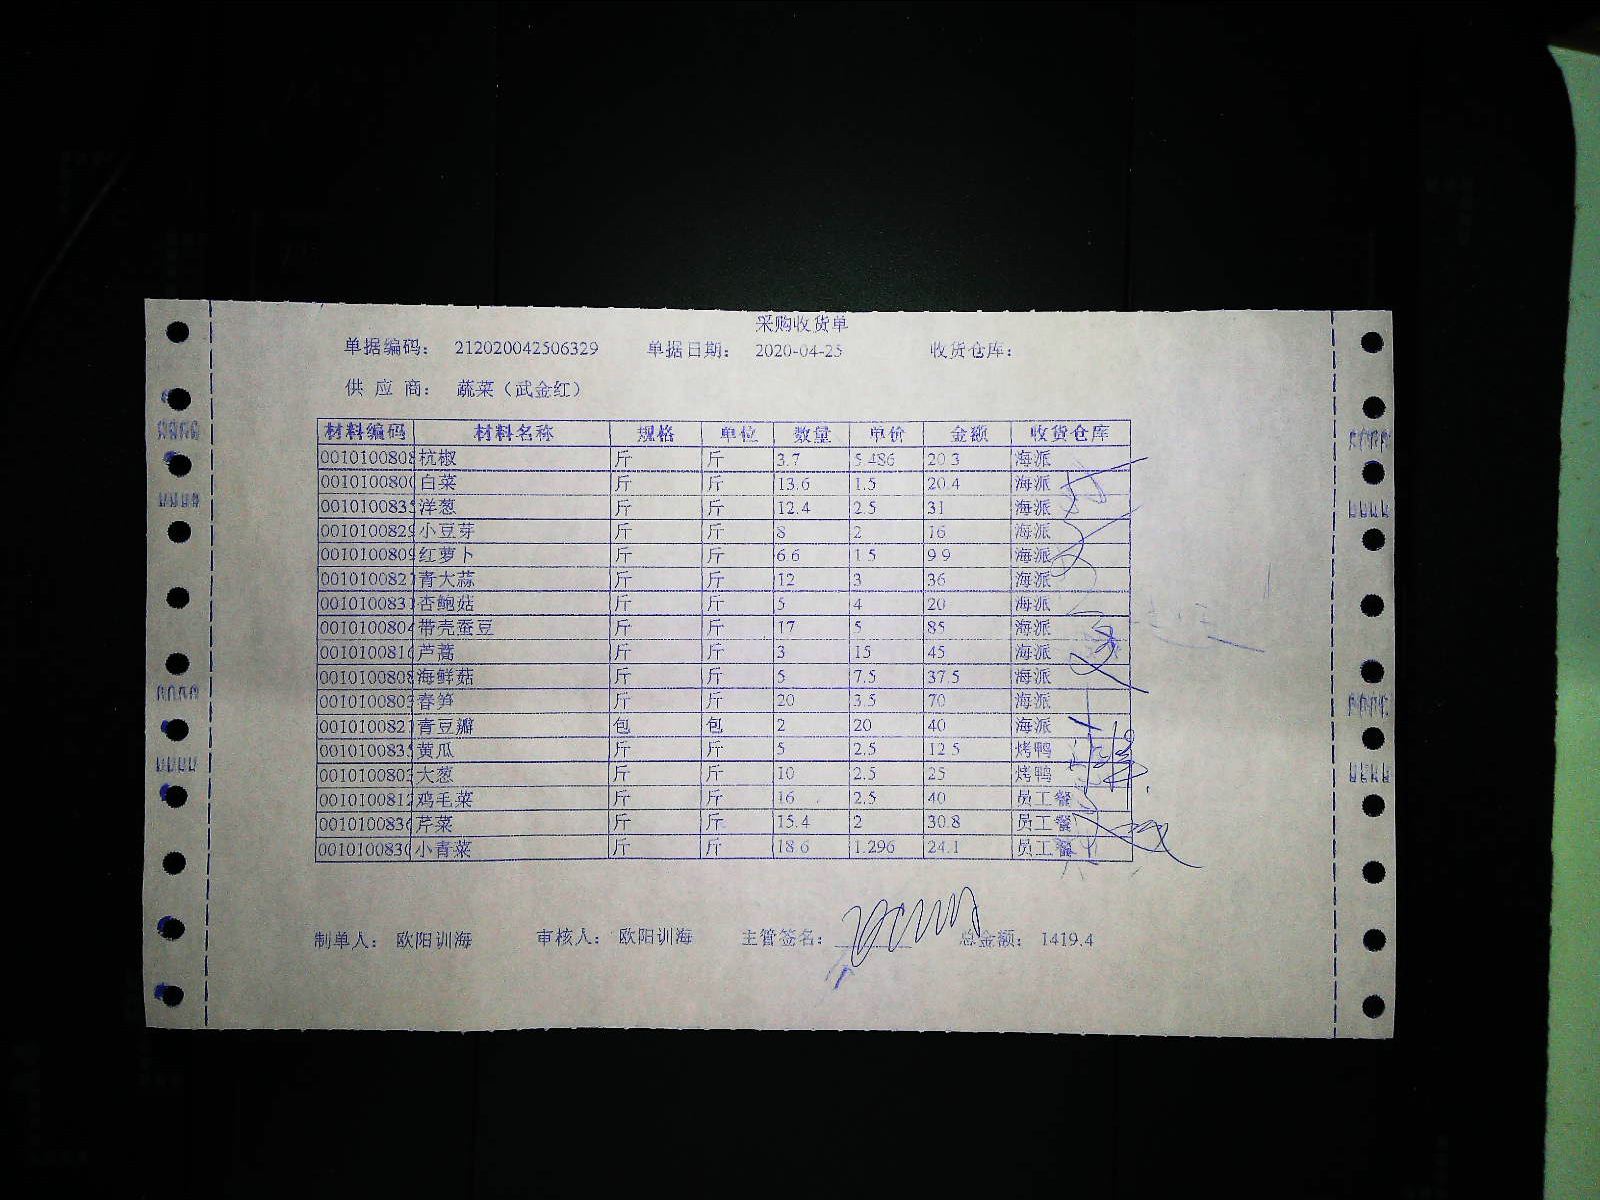 采购收货单
单据编码: 212020042506329 单据日期: 2020-04-25 收货仓库:
供 应 商: 蔬菜（武金红）
材料编码 材料名称 规格 单位 数量 单价 金额 收货仓库
0010100808 杭椒 斤 斤 3.7 5.486 20.3 海派
001010080 白菜 斤 斤 13.6 1.5 20.4 海派
001010083 洋葱 斤 斤 12.4 2.5 31 海派
001010082 小豆芽 斤 斤 8 2 16 海派
001010080 红萝卜 斤 斤 6.6 1.5 9.9 海派
001010082 青大蒜 斤 斤 12 3 36 海派
001010083 杏鲍菇 斤 斤 5 4 20 海派
001010080 带壳蚕豆 斤 斤 17 5 85 海派
001010081 芦蒿 斤 斤 3 15 45 海派
001010080 海鲜菇 斤 斤 5 7.5 37.5 海派
001010080 春笋 斤 斤 20 3.5 70 海派
001010082 青豆瓣 包 包 2 20 40 海派
001010083 黄瓜 斤 斤 5 2.5 12.5 烤鸭
001010080 大葱 斤 斤 10 2.5 25 烤鸭
001010081 鸡毛菜 斤 斤 16 2.5 40 员工餐
001010083 芹菜 斤 斤 15.4 2 30.8 员工餐
001010083 小青菜 斤 斤 18.6 1.296 24.1 员工餐
制单人: 欧阳训海 审核人: 欧阳训海 主管签名: 总金额: 1419.4